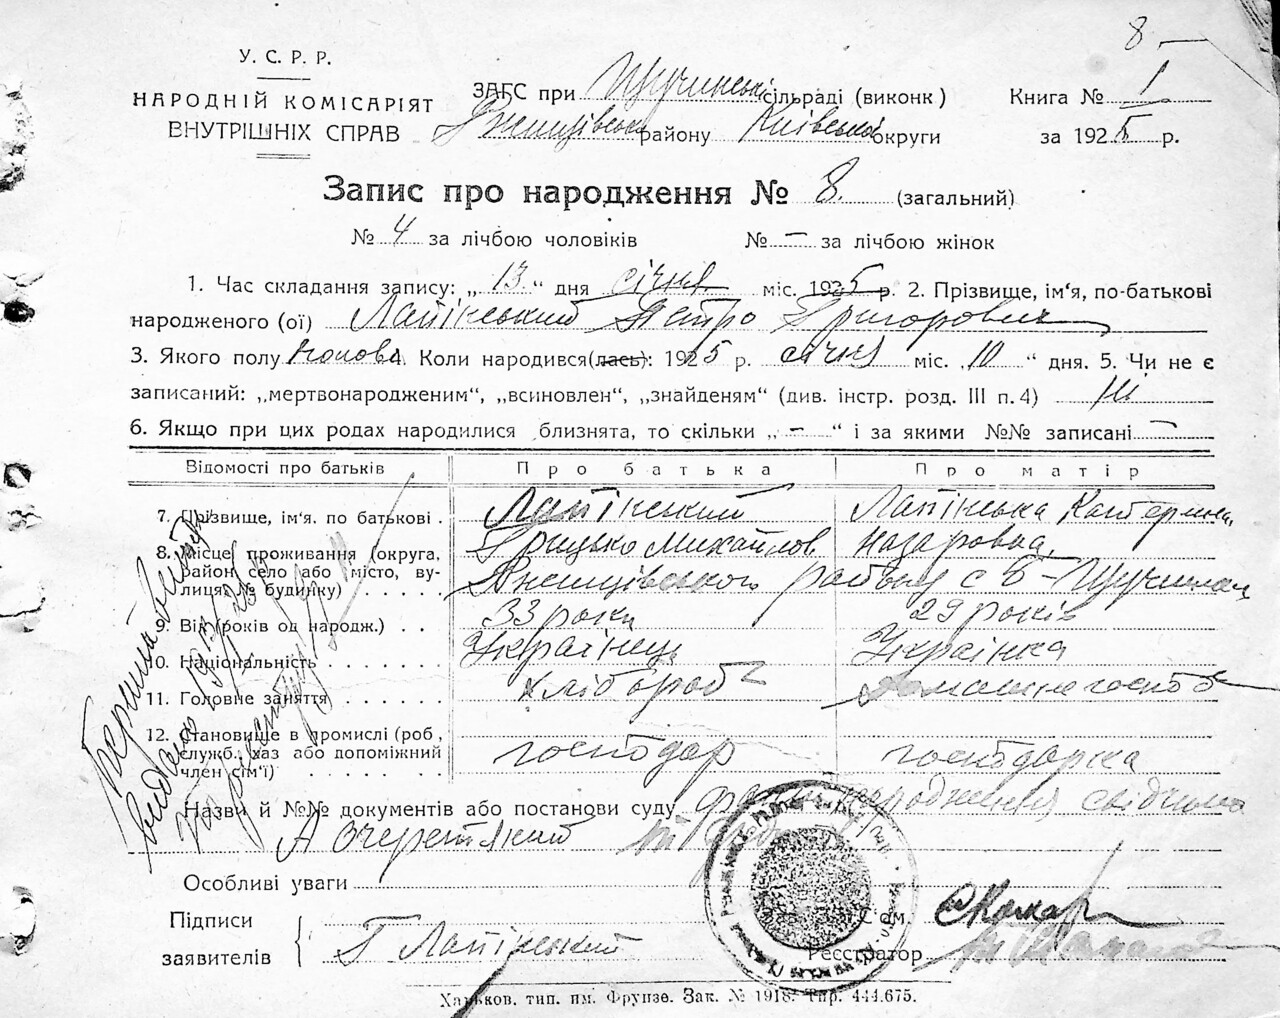 8 –
У. С. Р. Р.
НАРОДНІЙ КОМІСАРІЯТ
ВНУТРІШНІХ СПРАВ
ЗАГС при Щучинськ сільраді (виконк)
Ржищівськ району Київської округи
Книга № 1
за 1925 р.
Запис про народження № 8. (загальний)
№ 4 за лічбою чоловіків № – за лічбою жінок
1. Час складання запису: „ 13 “ дня січня міс. 1925 р. 2. Прізвище, ім'я, по-батькові
народженого (ої) Лапінський Петро Григорович
3. Якого полу чолов 4. Коли народився(лась): 1925 р. січня міс. „10 “ дня. 5. Чи не є
записаний: „мертвонародженим“, „всиновлен“, „знайденям“ (див. інстр. розд. III п. 4) Ні
6. Якщо при цих родах народилися близнята, то скільки „ – “ і за якими №№ записані –
Відомості про батьків Про батька Про матір
7. Прізвище, ім'я. по батькові . Лапінський Лапінська Катерина
Грицько Михайлов Назаровна
8. Місце проживання (округа, район село або місто, вулиця, № будинку) . . . . . Ржищівського району с
9. Вік (років од народж.) . . 33 роки 29 років
10. Національність . . . . . Українец Українка
11. Головне заняття . . . . . Хлібороб домашнє господ
12. Становище в промислі (роб, служб., хаз або допоміжний член сім'ї) . . . . . . . господар господарка
Назви й №№ документів або постанови суду народження свідчила
А Очеретяний
Особливі уваги
Підписи
заявителів Г Лапінський
Реєстратор
Харьков, тип. им. Фрунзе. Зак. № 1918. Тир. 444.675.